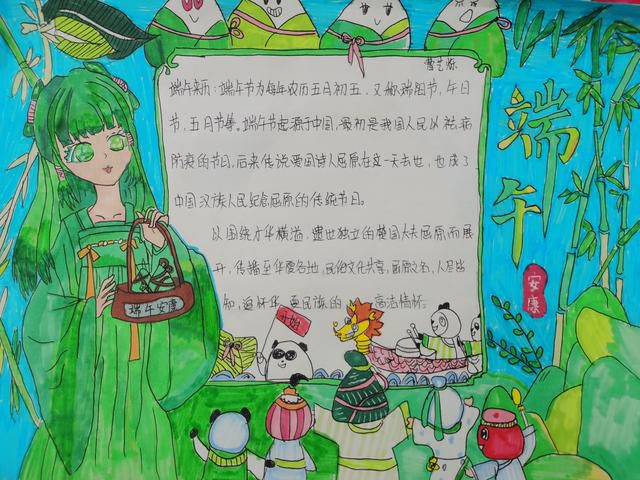 曹艺烁
端午亲历:端午节为每年农历五月初五,又称端阳节,午日
节,五月节等。端午节起源于中国,最初是我国人民以祛病
防疫的节日,后来传说爱国诗人屈原在这一天去世,也成了
中国汉族人民纪念屈原的传统节日。
以围绕才华横溢、遗世独立的楚国大夫屈原而展
开,传播至华夏各地,民俗文化共享,屈原之名,人尽皆
知,追怀华夏民族的 高洁情怀。
端午
安康
端午安康
开始